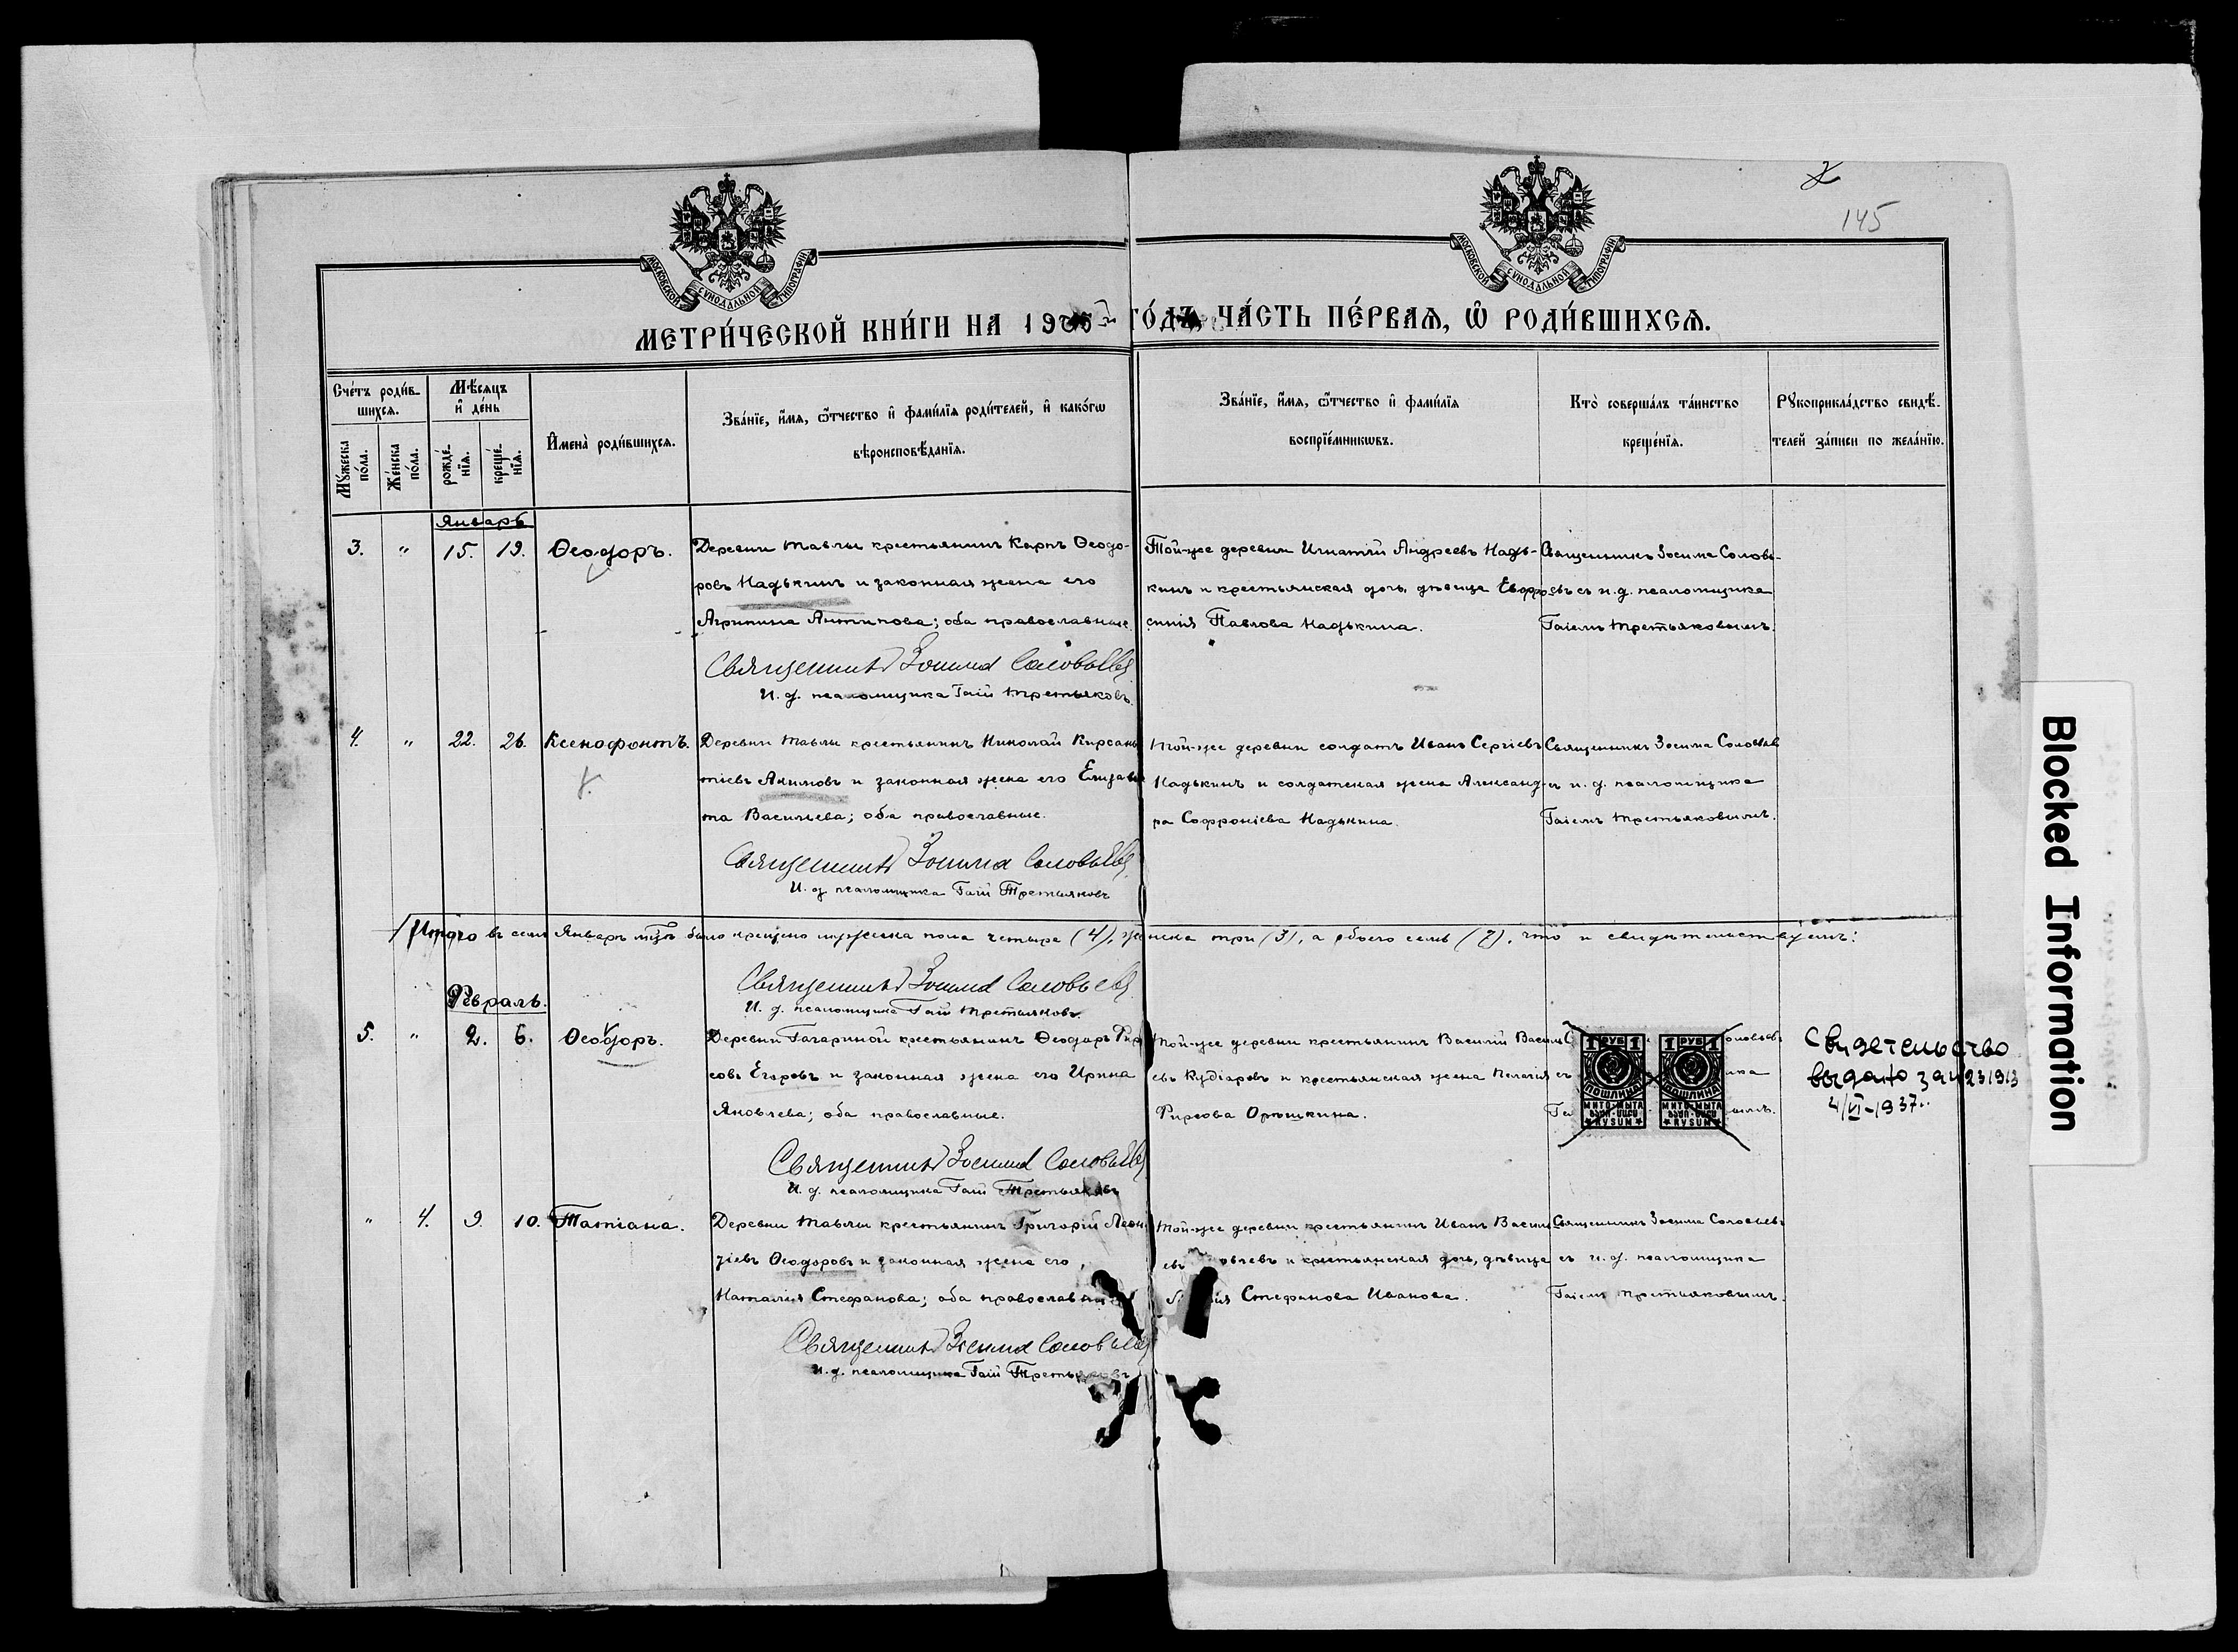 145
МОСКОВСКОЙ СѴНОДАЛЬНОЙ ТИПОГРАФІИ
МОСКОВСКОЙ СѴНОДАЛЬНОЙ ТИПОГРАФІИ
МЕТРИ́ЧЕСКОЙ КНИ́ГИ НА 190 ГО́ДЪ, ЧА́СТЬ ПЕ́РВАѦ, Ѡ҆ РОДИ́ВШИХСѦ.
Сче́тъ роди́в-
шихсѧ.
Мѣ́сѧцъ
и҆ де́нь
Мꙋ́жеска по́ла.
Же́нска по́ла.
рожде́-
нїѧ.
креще́-
нїѧ.
И҆мена̀ роди́вшихсѧ.
Зва́нїе, и҆́мѧ, ѻ҆́тчество и҆ фами́лїѧ роди́телей, и҆ како́гѡ
вѣроисповѣ́данїѧ.
Зва́нїе, и҆́мѧ, ѻ҆́тчество и҆ фами́лїѧ
воспрїе́мникѡвъ.
Кто̀ соверша́лъ та́инство
креще́нїѧ.
Рꙋкоприкла́дство свидѣ́-
телей за́писи по жела́нїю.
Январь
3. " 15. 19. Ѳеодоръ.
Деревни Тавлы крестьянинъ Карпъ Ѳеодо-
ровъ Надькинъ и законная жена его
Агрипина Антипова; оба православные.
Священникъ Зосима Соловьевъ
И. д. псаломщика Гай Третьяковъ.
Той-же деревни Игнатій Андреевъ Надь-
кинъ и крестьянская дочь, дѣвица Евфро-
синія Павлова Надькина.
Священникъ Зосима Соловь-
евъ съ и. д. псаломщика
Гаіемъ Третьяковымъ.
4. " 22. 26. Ксенофонтъ.
Деревни Тавлы крестьянинъ Николай Кирсан
тіевъ Акимовъ и законная жена его Елизаве
та Васильева; оба православные.
Священникъ Зосима Соловьевъ
И. д. псаломщика Гай Третьяковъ
Той-же деревни солдатъ Иванъ Сергіевъ
Надькинъ и солдатская жена Александ-
ра Софроніева Надькина.
Священникъ Зосима Соловьевъ
съ и. д. псаломщика
Гаіемъ Третьяковымъ.
Итого въ семъ Январѣ мцѣ было крещено мужеска пола четыре (4), женска три (3), а обоего семь (7), что и свидѣтельствуемъ:
Священникъ Зосима Соловьевъ
И. д. псаломщика Гай Третьяковъ.
Февраль.
5. " 2. 6. Ѳеодоръ.
Деревни Гагариной крестьянинъ Ѳеодоръ Фир
совъ Егоровъ и законная жена его Ирина
Яковлева; оба православные.
Священникъ Зосима Соловьевъ
И. д. псаломщика Гай Третьяковъ
Той-же деревни крестьянинъ Василій Василь
евъ Кудіаровъ и крестьянская жена Пелагія
Фирсова Орюшкина.
1 РУБ 1
ПОШЛИНА
МИТО-МЫТА
RYSUM
1 РУБ 1
ПОШЛИНА
МИТО-МЫТА
RYSUM
Свидетельство
выдано за №231913
4/VI-1937г.
" 4. 9. 10. Татіана.
Деревни Тавлы крестьянинъ Григорій Леон
тіевъ Ѳеодоровъ и законная жена его,
Наталія Стефанова; оба православные
Священникъ Зосима Соловьевъ
И. д. псаломщика Гай Третьяковъ
Той-же деревни крестьянинъ Иванъ Василь
евъ и крестьянская дочь, дѣвица
Стефанова Иванова.
Священникъ Зосима Соловьевъ
съ и. д. псаломщика
Гаіемъ Третьяковымъ.
Blocked Information